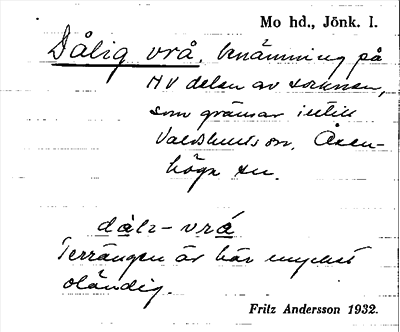 Mo hd., Jönk. l.
Dålig vrå, benämning på
NV delen av socknen,
som gränsar intill
Valdshults sn, Åsen-
höga sn.
dål₂-vrå
Terrängen är här mycket
oländig.
Fritz Andersson 1932.